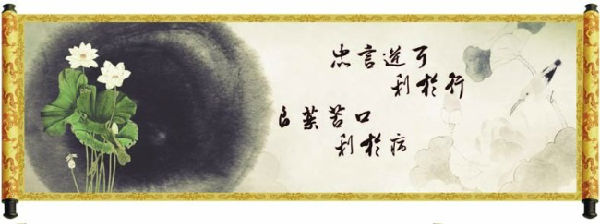 忠言逆耳
利於行
良藥苦口
利於病